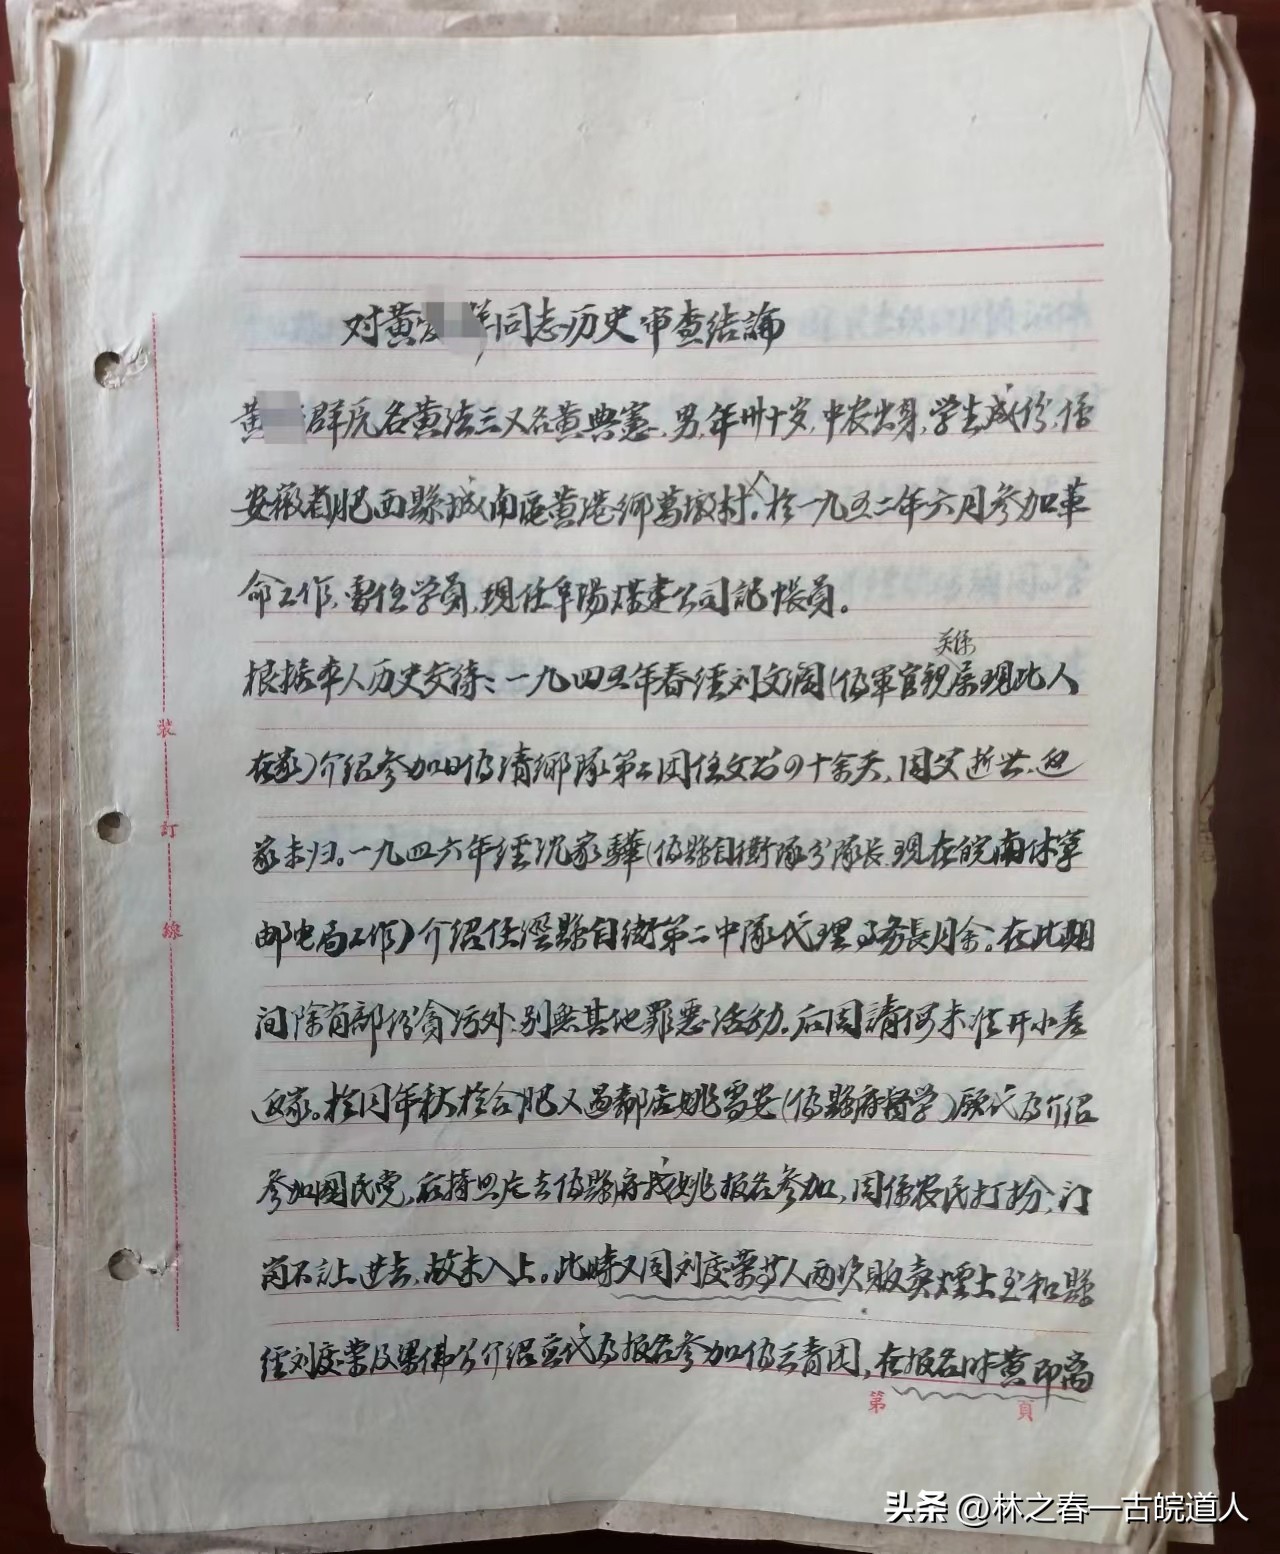 对黄 同志历史审查结論
黄 群原名黄法三又名黄典憲、男,年卅十岁,中农出身,学生成份,係
安徽省肥西縣城南区黄港鄉葛墩村。於一九五二年六月参加革
命工作,曾任学員,現任阜陽 建公司記帳員。
关係
根据本人历史交待:一九四五年春经刘文阁(伪軍官親属現此人
在家)介绍参加日伪清鄉隊第二团任文书四十余天,因父逝世,迴
家未归。一九四六年经沈家驊(伪縣自衛隊分隊長,現在皖南休寧
邮电局工作)介绍任 縣自衛第二中隊代理事务長月余。在此期
间除有部份貪污外,别無其他罪惡活动。后因請假未准开小差
返家。於同年秋於合肥又遇鄰居姚雪安(伪縣府督学)願代为介绍
参加國民党,在持照片去伪縣府找姚报名参加,因係农民打扮,门
岗不让进去,故未入上。此時又同刘度荣等人两次販卖煙土至和縣
经刘度荣及梁佛公介绍 代为报名参加伪三青团,在报名时黄即离
裝
訂
線
第 頁
头条 @林之春一古皖道人